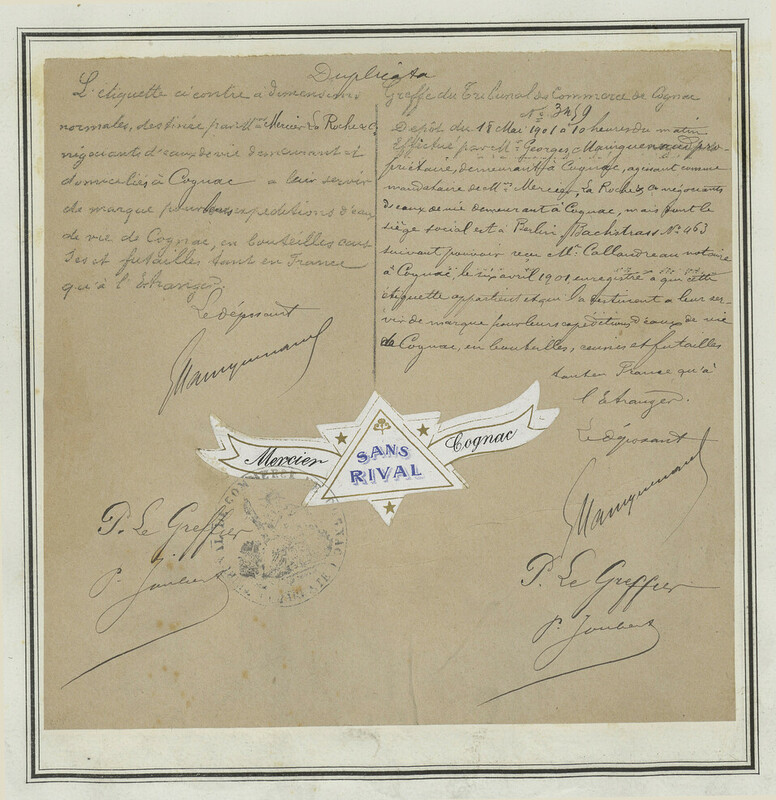 Duplicata
L'étiquette ci contre à dimensions
normales, destinée par Mrs Mercier, La Roche & Co
négociants d'eaux de vie demeurant et
domiciliés à Cognac a leur servir
de marque pour leurs expéditions d'eaux
de vie de Cognac, en bouteilles cais
ses et futailles tant en France
qu'à l'Etranger.
Le déposant
Mainguenaud
P. Le Greffier
P. Joubert
Greffe du Tribunal de Commerce de Cognac
No 3459
Dépôt du 18 Mai 1901 à 10 heures du matin
Effectué par Mr Georges Mainguenaud pro-
priétaire, demeurant à Cognac, agissant comme
mandataire de Mrs Mercier, La Roche & Co négociants
d'eaux de vie demeurant à Cognac, mais dont le
siège social est à Berlin, Bachstrass No 463
suivant pouvoir reçu Mr Callandreau notaire
à Cognac, le six avril 1901, enregistré à qui cette
étiquette appartient et qui la destinent a leur ser-
vir de marque pour leurs expéditions d'eaux de vie
de Cognac, en bouteilles, caisses et futailles
tant en France qu'à
l'Etranger.
Le déposant
Mainguenaud
P. Le Greffier
P. Joubert
Mercier
SANS
RIVAL
Cognac